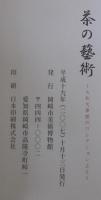 茶の藝術
平成十九年(二〇〇七)十月十三日発行
発行 岡崎市美術博物館
〒四四四-〇〇〇二
愛知県岡崎市高隆寺町峠一
印刷 日本印刷株式会社